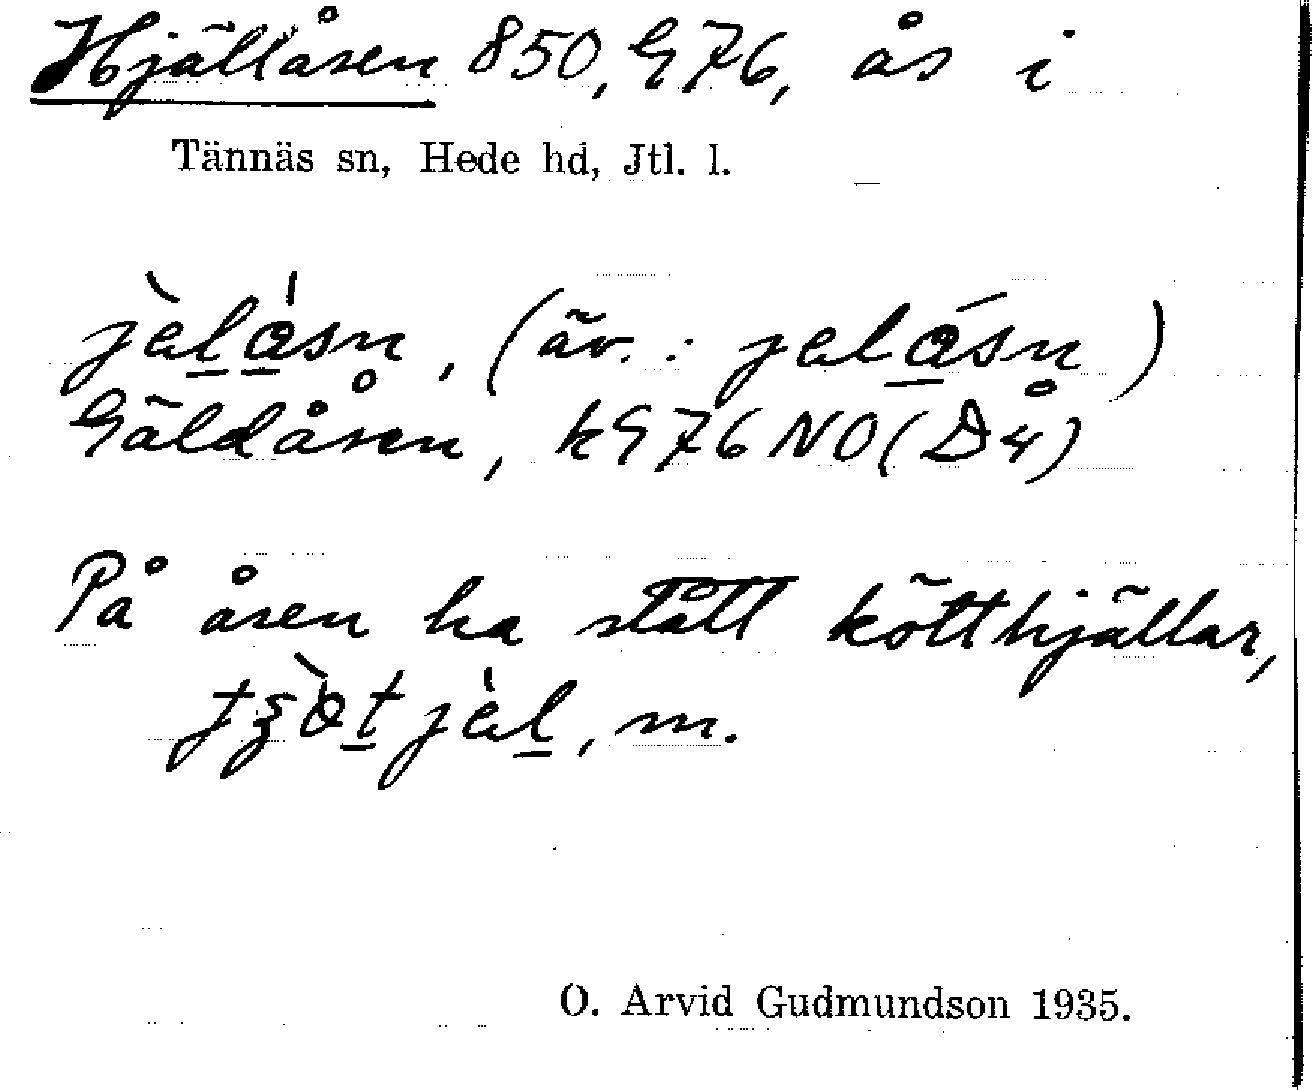 Hjällåsen 850, G76, ås i
Tännäs sn, Hede hd, Jtl. l.
jèlásn, (äv.: jelásn)
Gäldåsen, kG76NO(Då)
På åsen ha stått kötthjällar,
m.
O. Arvid Gudmundson 1935.